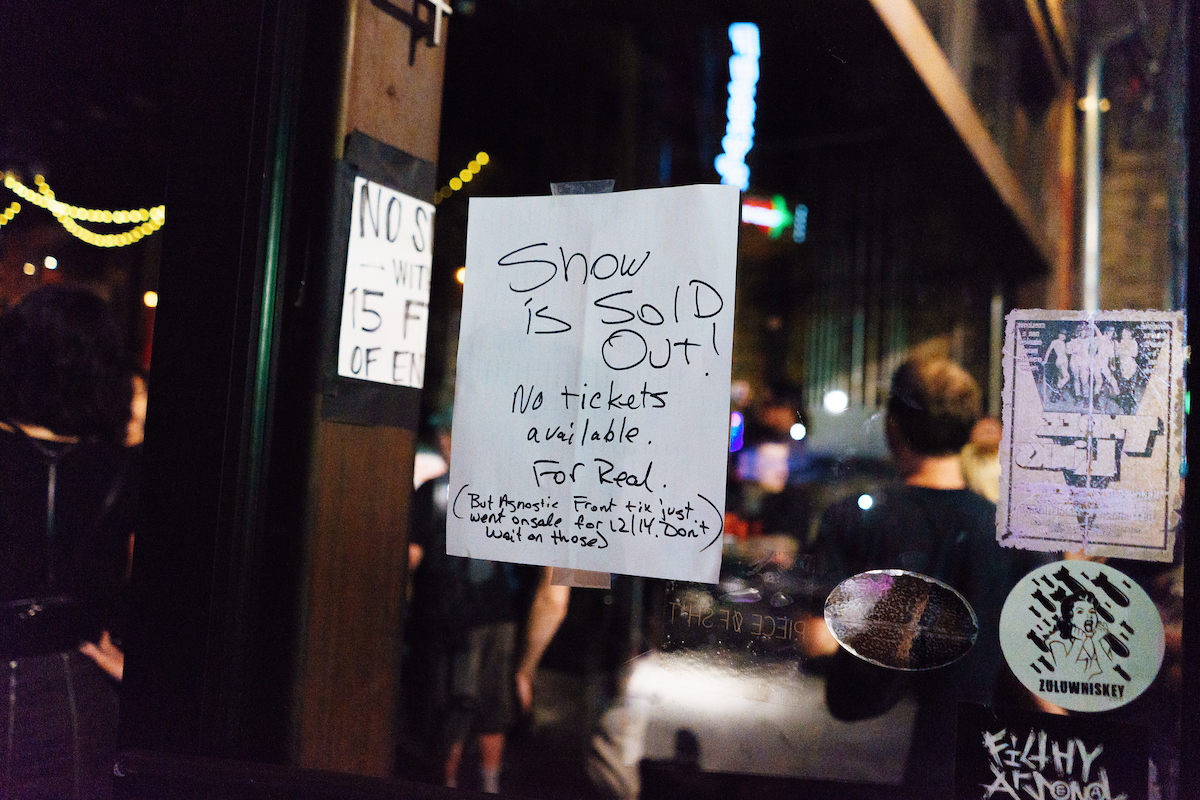 NO S
→ WIT
15 F
OF EN
Show
is SolD
Out!
No tickets
available.
For Real.
(But Agnostic Front tix just
went onsale for 12/14. Don't
wait on those)
PIECE OF SH*T
ZULUWHISKEY
FILTHY